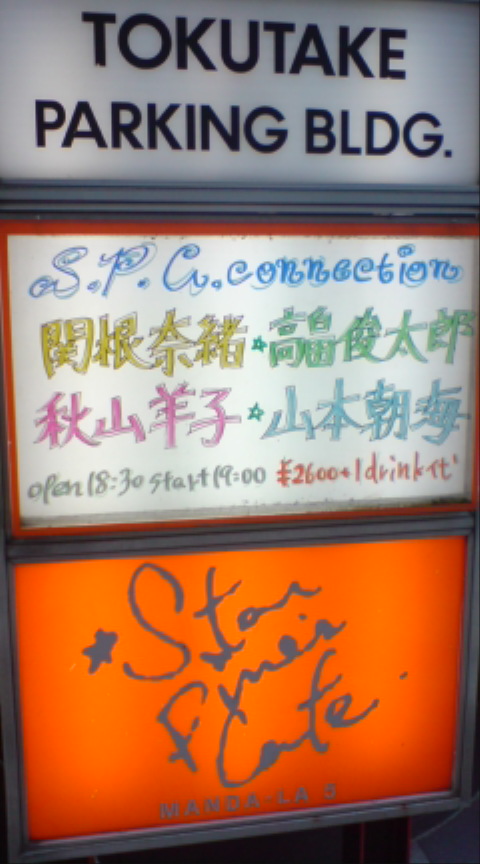 TOKUTAKE
PARKING BLDG.
S.P.G. connection
関根奈緒☆高畠俊太郎
秋山羊子☆山本朝海
open 18:30 start 19:00 ¥2600+1drink
★Star
Pine's
Cafe
MANDA-LA